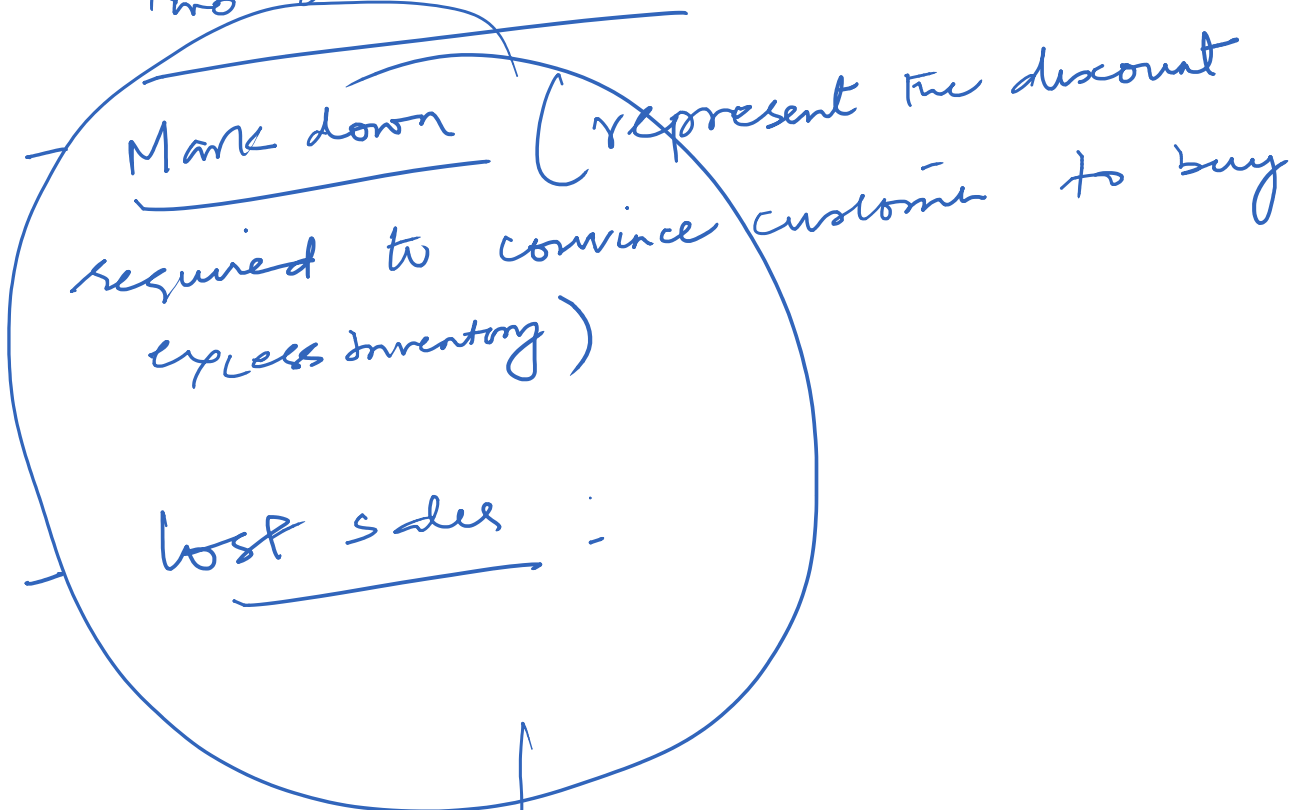 Two
- Mark down (represent the discount
required to convince customer to buy
excess inventory)
- Lost sales :-